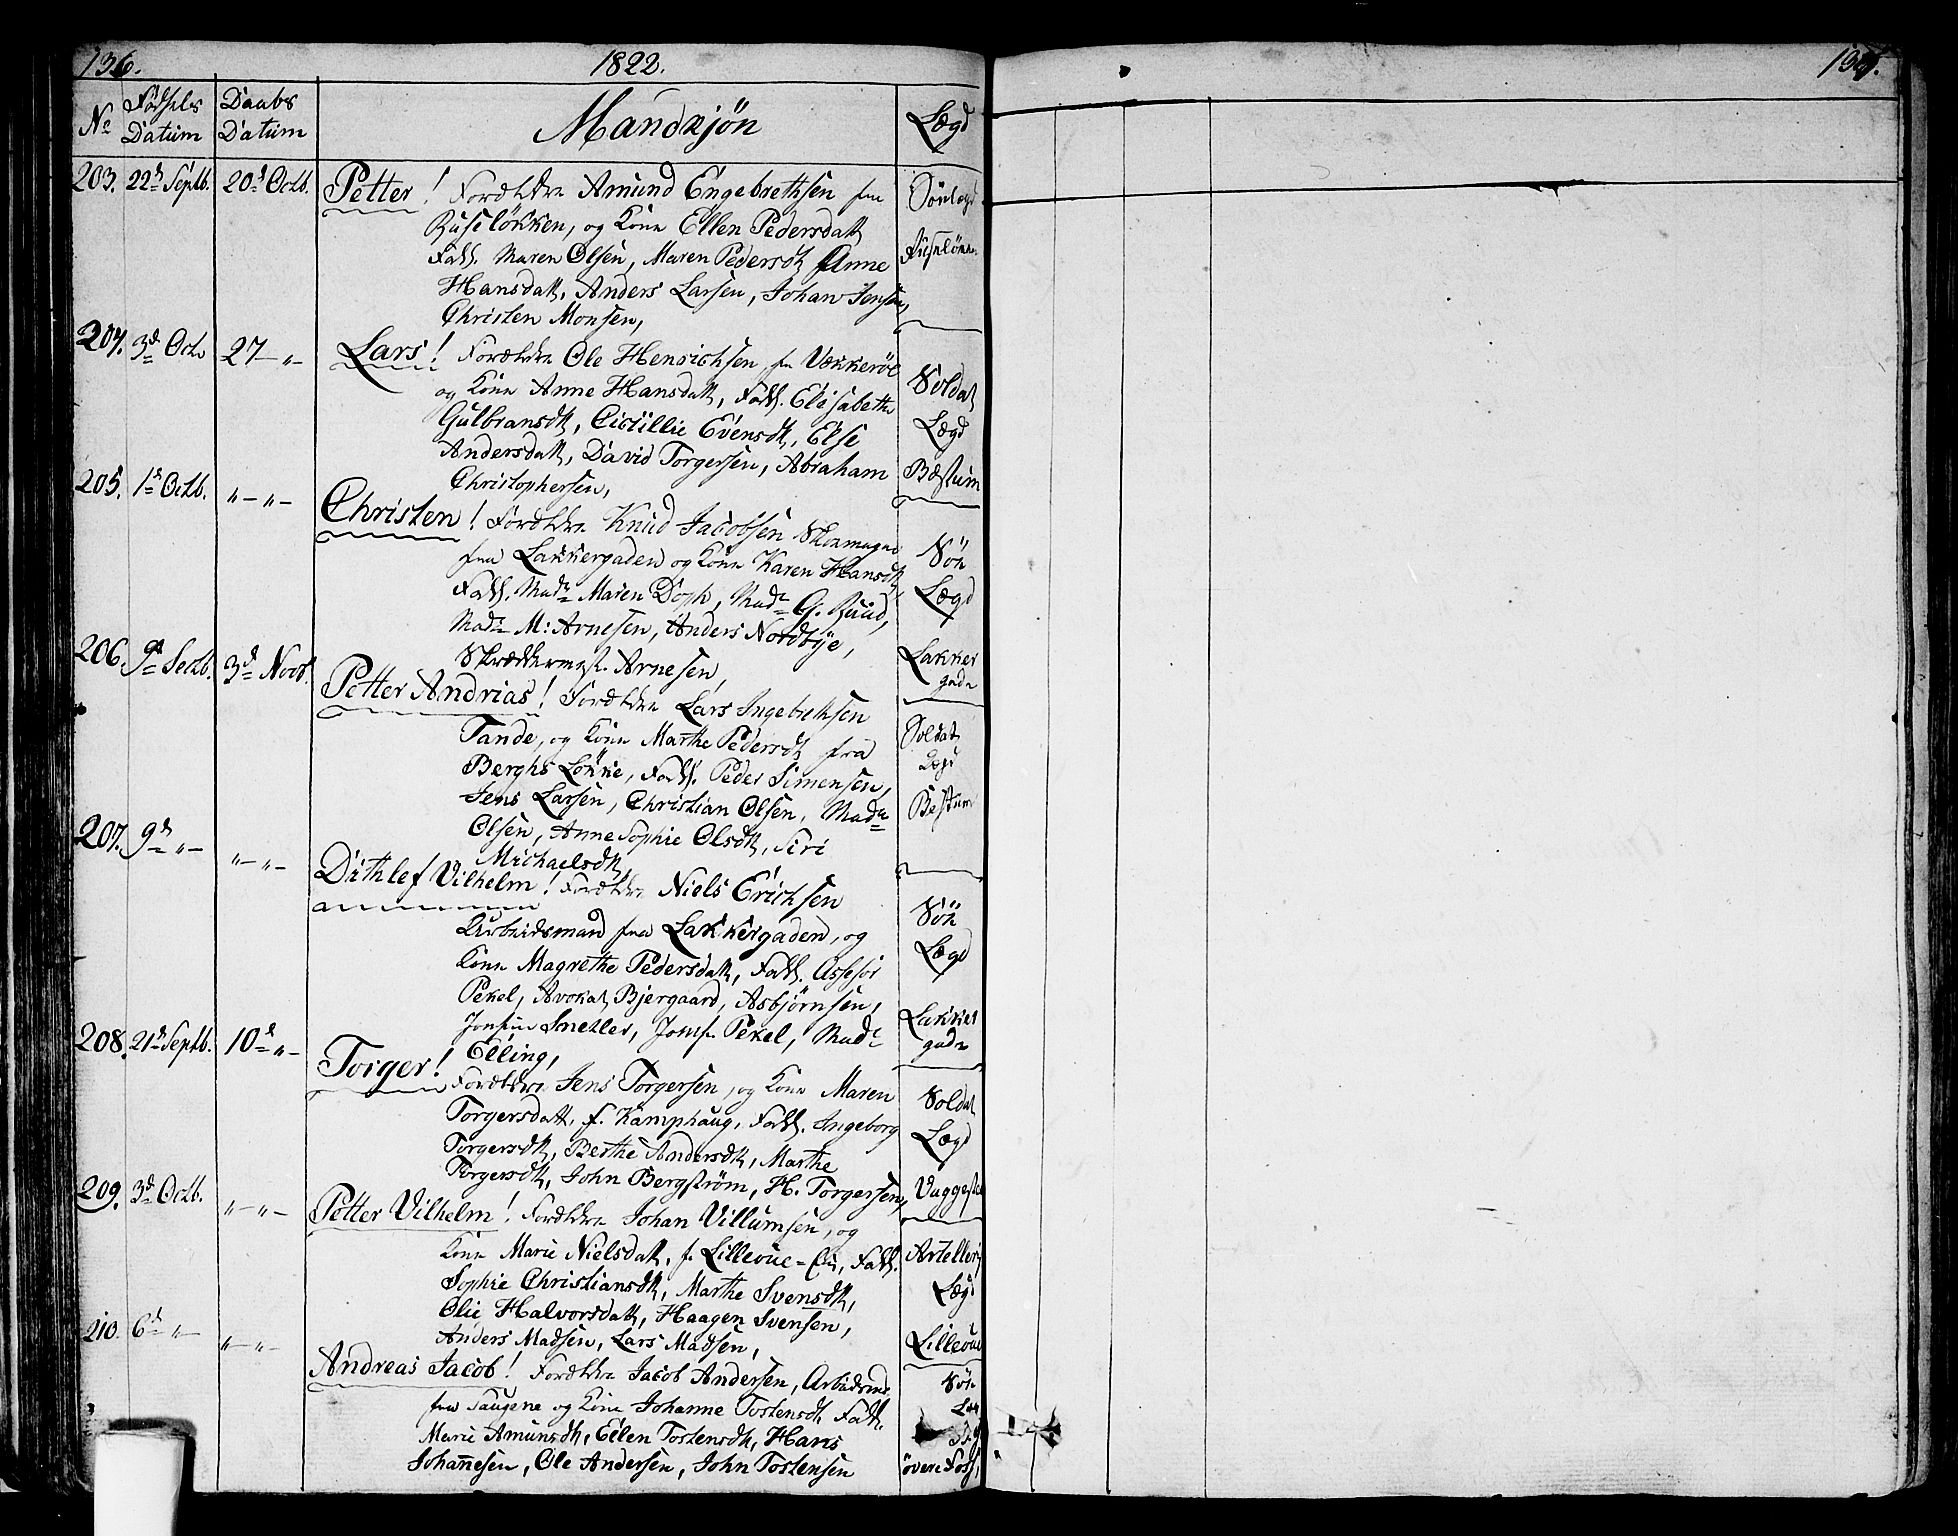 136.
1822.
No
Fødsels
Datum
Daabs
Datum
Mandkjön
Lægd
203. 22d Septb. 20d Octb. Petter! Forældre Amund Engebrethsen fra
Ruseløkken, og Kone Ellen Pedersdatt
Fadd. Maren Olsen, Maren Pedersdt, Anne
Hansdatt, Anders Larsen, Johan Jensen,
Christen Monsen,
Sönlægd
Ruseløken
204. 3d Octb 27 "- Lars! Forældre Ole Henrichsen, fr Vækkeröe
og Kone Anne Hansdatt, Fadd. Elisabeth
Gulbransdt, Cicillie Evensdt, Else
Andersdatt, David Torgersen, Abraham
Christophersen,
Soldat
Lægd
Bæstum
205. 1d Octb. "-"- Christen! Forældre Knud Jacobsen Skomager
fra Lakkergaden og Kone Karen Hansdt
Fadd. Made Maren Doph, Made G. Ruud,
Made M: Arnesen, Anders Nordbye,
Skræddermest. Arnesen,
Söe
Lægd
Lakker
gade
206. 9d Sectb. 3d Novb. Petter Andrias! Forældre Lars Ingebrethsen
Tande, og Kone Marthe Pedersdt fra
Berghs Løkke, Fadd. Peder Simensen,
Jens Larsen, Christian Olsen, Made
Olsen, Anne Sophie Olsdt, Siri
Michaelsdt,
Soldat
Lægd
Bestum
207. 9d "- "-"- Dithlef Vilhelm! Forældre Niels Erichsen
Arbeidsmand fra Lakkergaden, og
Kone Magrethe Pedersdatt, Fadd. Assesor
Pekel, Avokat Bjergaard, Asbjørnsen,
Jomfrue Smetler, Jomf. Pekel, Made
Elling,
Söe
Lægd
Lakker
gade
208. 21d Septb. 10d "- Torger!
Forældre Jens Torgersen, og Kone Maren
Torgersdatt, f. Kamphaug, Fadd. Ingeborg
Torgersdt, Berthe Andersdt, Marthe
Torgersdt, John Bergstrøm, H. Torgersen,
Soldat
Lægd
Vaggesten
209. 3d Octb. "-"- Petter Vilhelm! Forældre Johan Villumsen, og
Kone Marie Nielsdatt, f. Lilleoue-Eie, Fadd.
Sophie Christiansdt, Marthe Svensdt,
Olie Halvorsdatt, Haagen Svensen,
Anders Madsen, Lars Madsen,
Artelleri
Lægd
Lilleoue
210. 6d "- "-"- Andreas Jacob! Forældre Jacob Andersen, Arbidsmd
fra Saugene og Kone Johanne Tostensdt, Fadd.
Marie Amunsdt, Ellen Tostensdt, Hans
Johannesen, Ole Andersen, John Tostensen
Söe
övere Foss